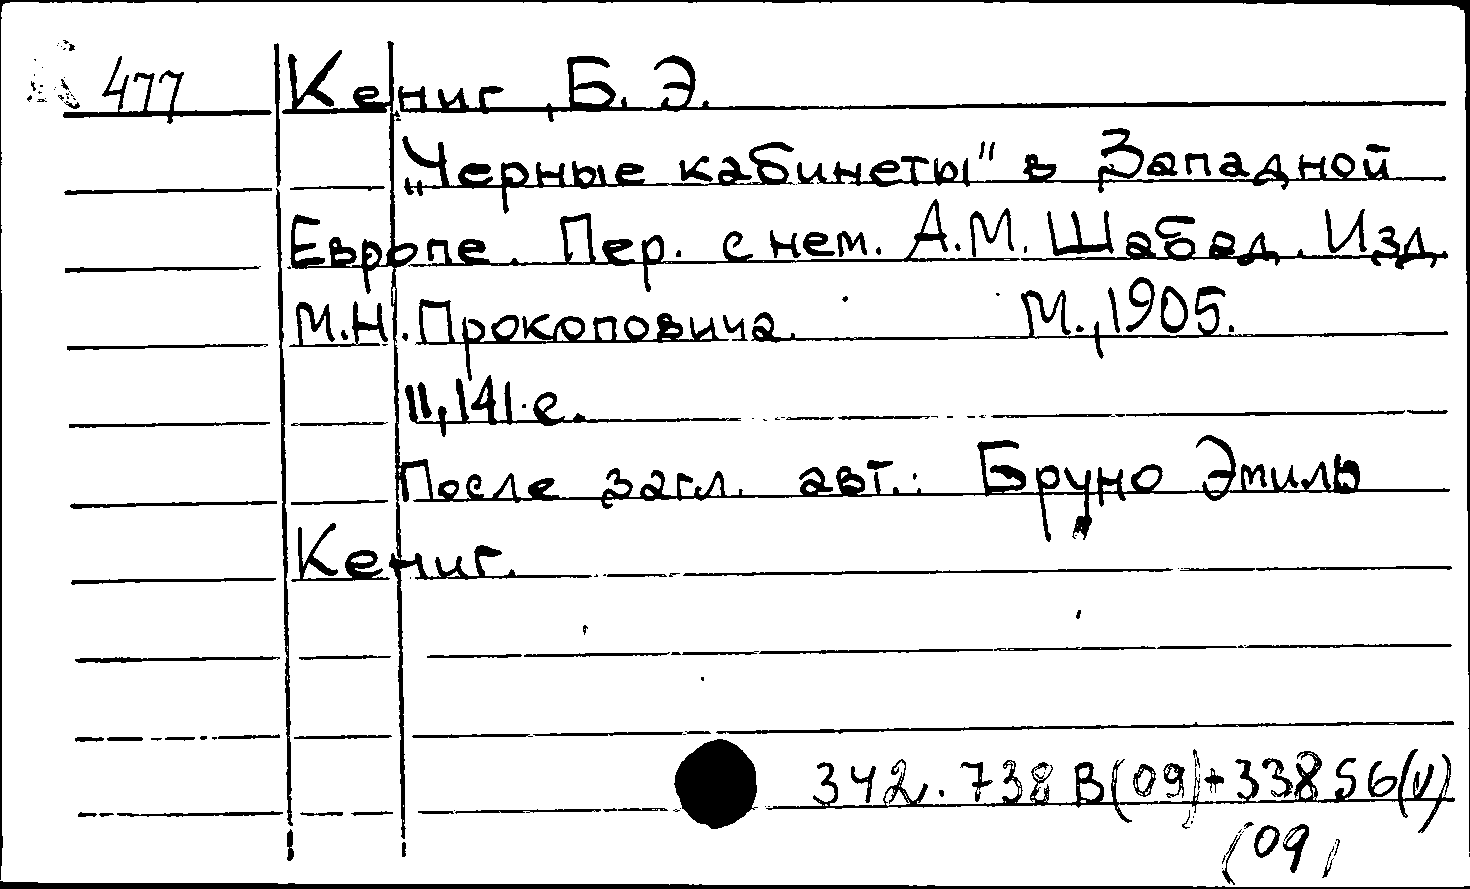 К 477 Кениг, Б. Э.
„Черные кабинеты" в Западной
Европе. Пер. с нем. А.М. Шабад. Изд.
М.Н. Прокоповича. М., 1905.
II, 141 с.
После загл. авт.: Бруно Эмиль
Кениг.
342.738 В(09)+33856(V)
(09)